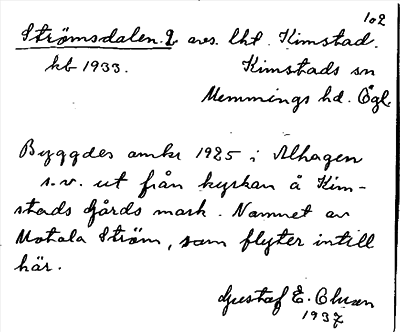 102
Strömsdalen. 9 avs. lht. Kimstad.
kb 1933. Kimstads sn
Memmings hd. Ögl.
Byggdes omkr 1925 i Alhagen
s.v. ut från kyrkan å Kim-
stads Gårds mark. Namnet av
Motala Ström, som flyter intill
här.
Gustaf E. Olsson
1937